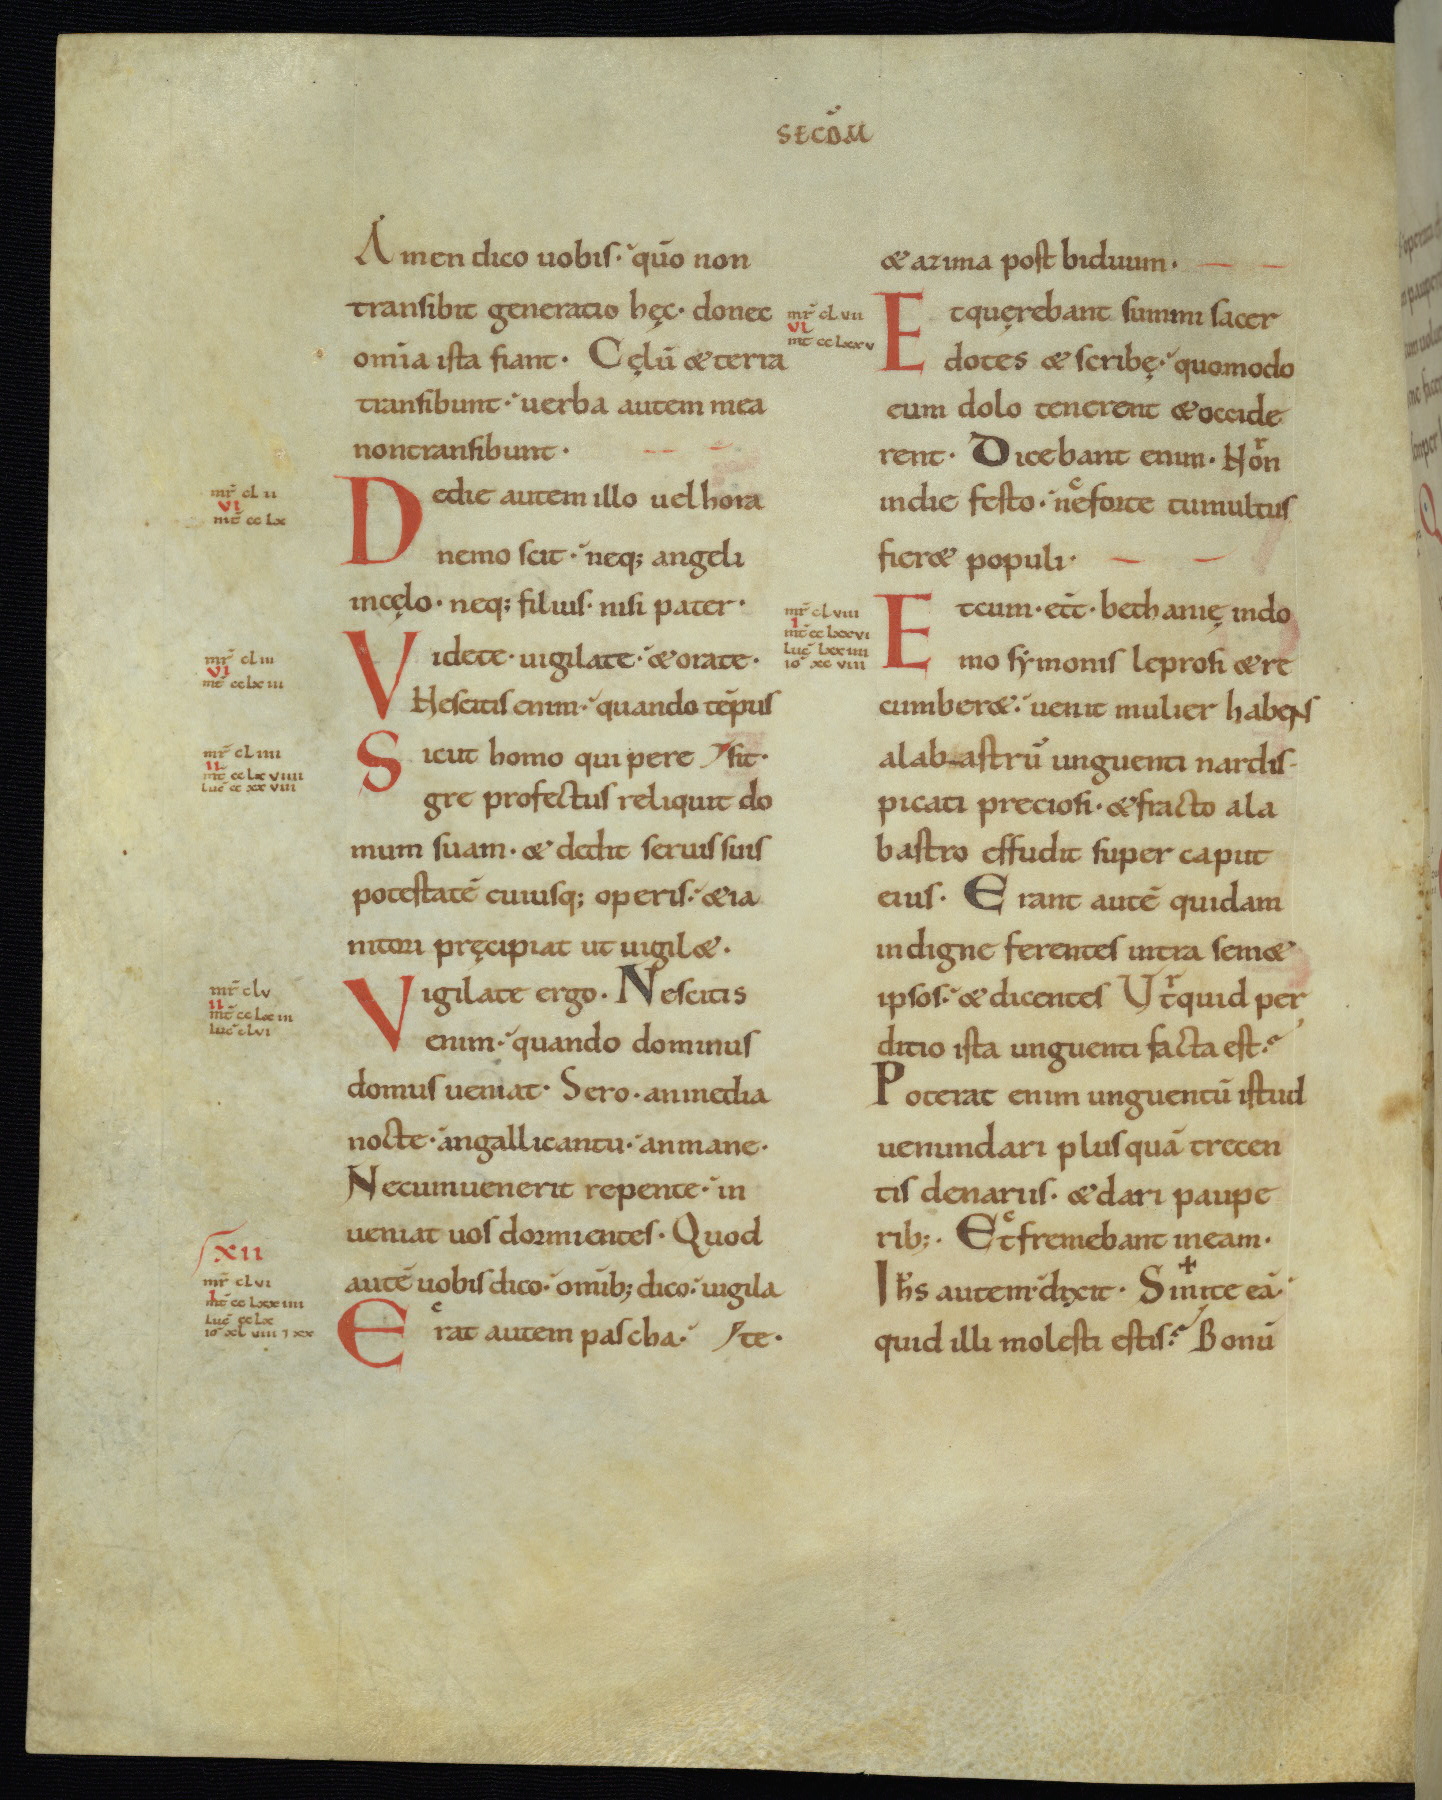 SECDM̄
Amen dico uobis· quō non
transibit generatio hęc· donec
om̄ia ista fiant· Cęlū & terra
transibunt· uerba autem mea
non transibunt·
mr̄ cl ii
vi
mt̄ cc lx
Dedie autem illo uel hora
nemo scit· neq; angeli
incęlo· neq; filius· nisi pater·
mr̄ cl iii
vi
mt̄ cc lx iii
Videte· uigilate· & orate·
Nescitis enim· quando tēpus
mr̄ cl iiii
ii
mt̄ cc lx viiii
luc̄ cc xx viii
Sicut homo qui pere sit·
gre profectus reliquit do
mum suam· & dedit seruis suis
potestatē cuiusq; operis· & ia
nitori pręcipiat ut uigil&·
mr̄ clv
ii
mt̄ cc lx iii
luc̄ clvi
Vigilate ergo· Nescitis
enim· quando dominus
domus ueniat· Sero· an media
nocte· an gallicantu· an mane·
Ne cum uenerit repente· in
ueniat uos dormientes· Quod
xii
autē uobis dico· om̄ib; dico· uigila
mr̄ cl vi
i
mt̄ cc lxx iiii
luc̄ cc lx
io xl viii ⁊ xx
Erat autem pascha· te·
& azima post biduum·
mr̄ cl vii
vi
mt̄ cc lxx v
Et quęrebant summi sacer
dotes & scribę· quomodo
eum dolo tenerent & occide
rent· Dicebant enim· Non
in die festo· ne forte tumultus
fier& populi·
mr̄ cl viii
i
mt̄ cc lxx vi
luc̄ lxx iiii
io xc viii
Et cum· ēēt· bethanię in do
mo symonis leprosi & re
cumber&· uenit mulier habens
alabastrū unguenti nardis
picati preciosi· & fracto ala
bastro effudit super caput
eius· Erant autē quidam
indigne ferentes intra sem&
ipsos· & dicentes Ut quid per
ditio ista unguenti facta est·
Poterat enim unguentū istud
uenundari plus quā trecen
tis denariis· & dari paupe
rib;· Et fremebant in eam·
Ih̄s autem dixit· Sinite eā·
quid illi molesti estis· Bonū